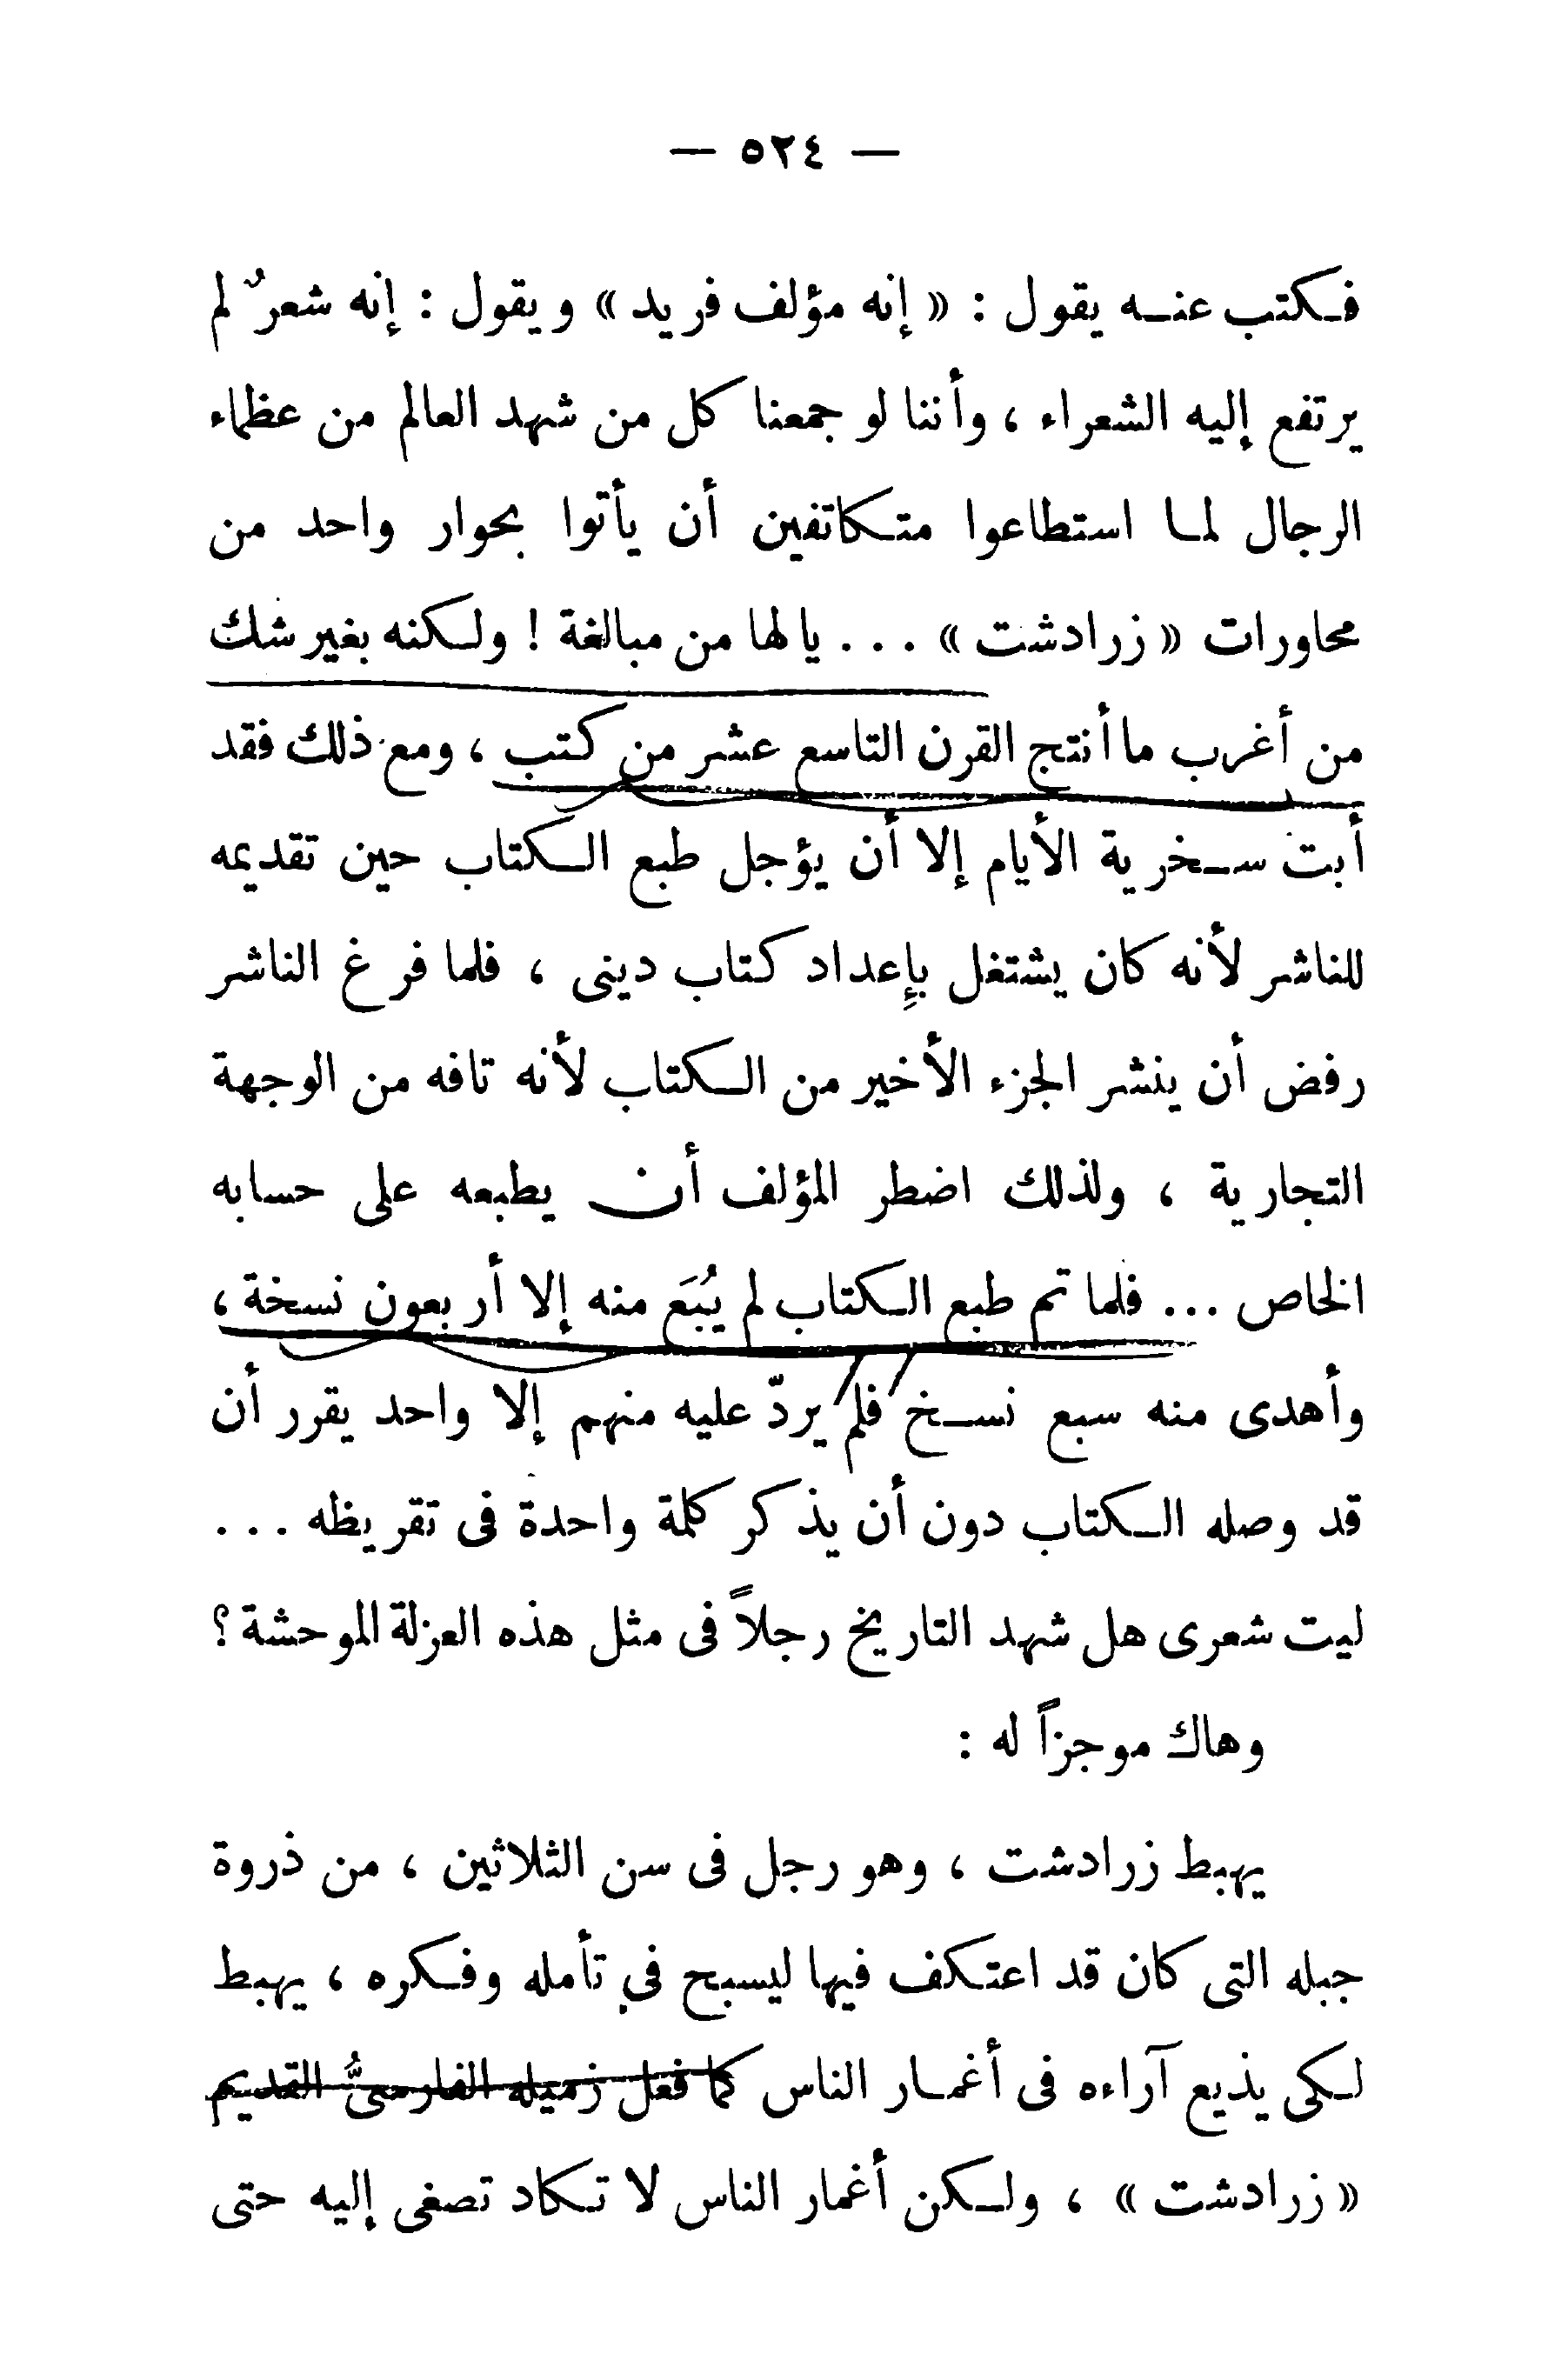 — ٥٢٤ —
فكتب عنه يقول : « إنه مؤلف فريد » ويقول : إنه شعرٌ لم
يرتفع إليه الشعراء ، وأننا لو جمعنا كل من شهد العالم من عظماء
الرجال لما استطاعوا متكاتفين أن يأتوا بحوار واحد من
محاورات « زرادشت » ... يا لها من مبالغة ! ولكنه بغير شك
من أغرب ما أنتج القرن التاسع عشر من كتب ، ومع ذلك فقد
أبت سخرية الأيام إلا أن يؤجل طبع الكتاب حين تقديمه
للناشر لأنه كان يشتغل بإعداد كتاب دينى ، فلما فرغ الناشر
رفض أن ينشر الجزء الأخير من الكتاب لأنه تافه من الوجهة
التجارية ، ولذلك اضطر المؤلف أن يطبعه على حسابه
الخاص ... فلما تم طبع الكتاب لم يُبَع منه إلا أربعون نسخة ،
وأهدى منه سبع نسخ فلم يردّ عليه منهم إلا واحد يقرر أن
قد وصله الكتاب دون أن يذكر كلمة واحدة فى تقريظه ...
ليت شعرى هل شهد التاريخ رجلاً فى مثل هذه العزلة الموحشة ؟
وهاك موجزاً له :
يهبط زرادشت ، وهو رجل فى سن الثلاثين ، من ذروة
جبله التى كان قد اعتكف فيها ليسبح فى تأمله وفكره ، يهبط
لكى يذيع آراءه فى أغمار الناس كما فعل زميله الفارسىُّ القديم
« زرادشت » ، ولكن أغمار الناس لا تكاد تصغى إليه حتى